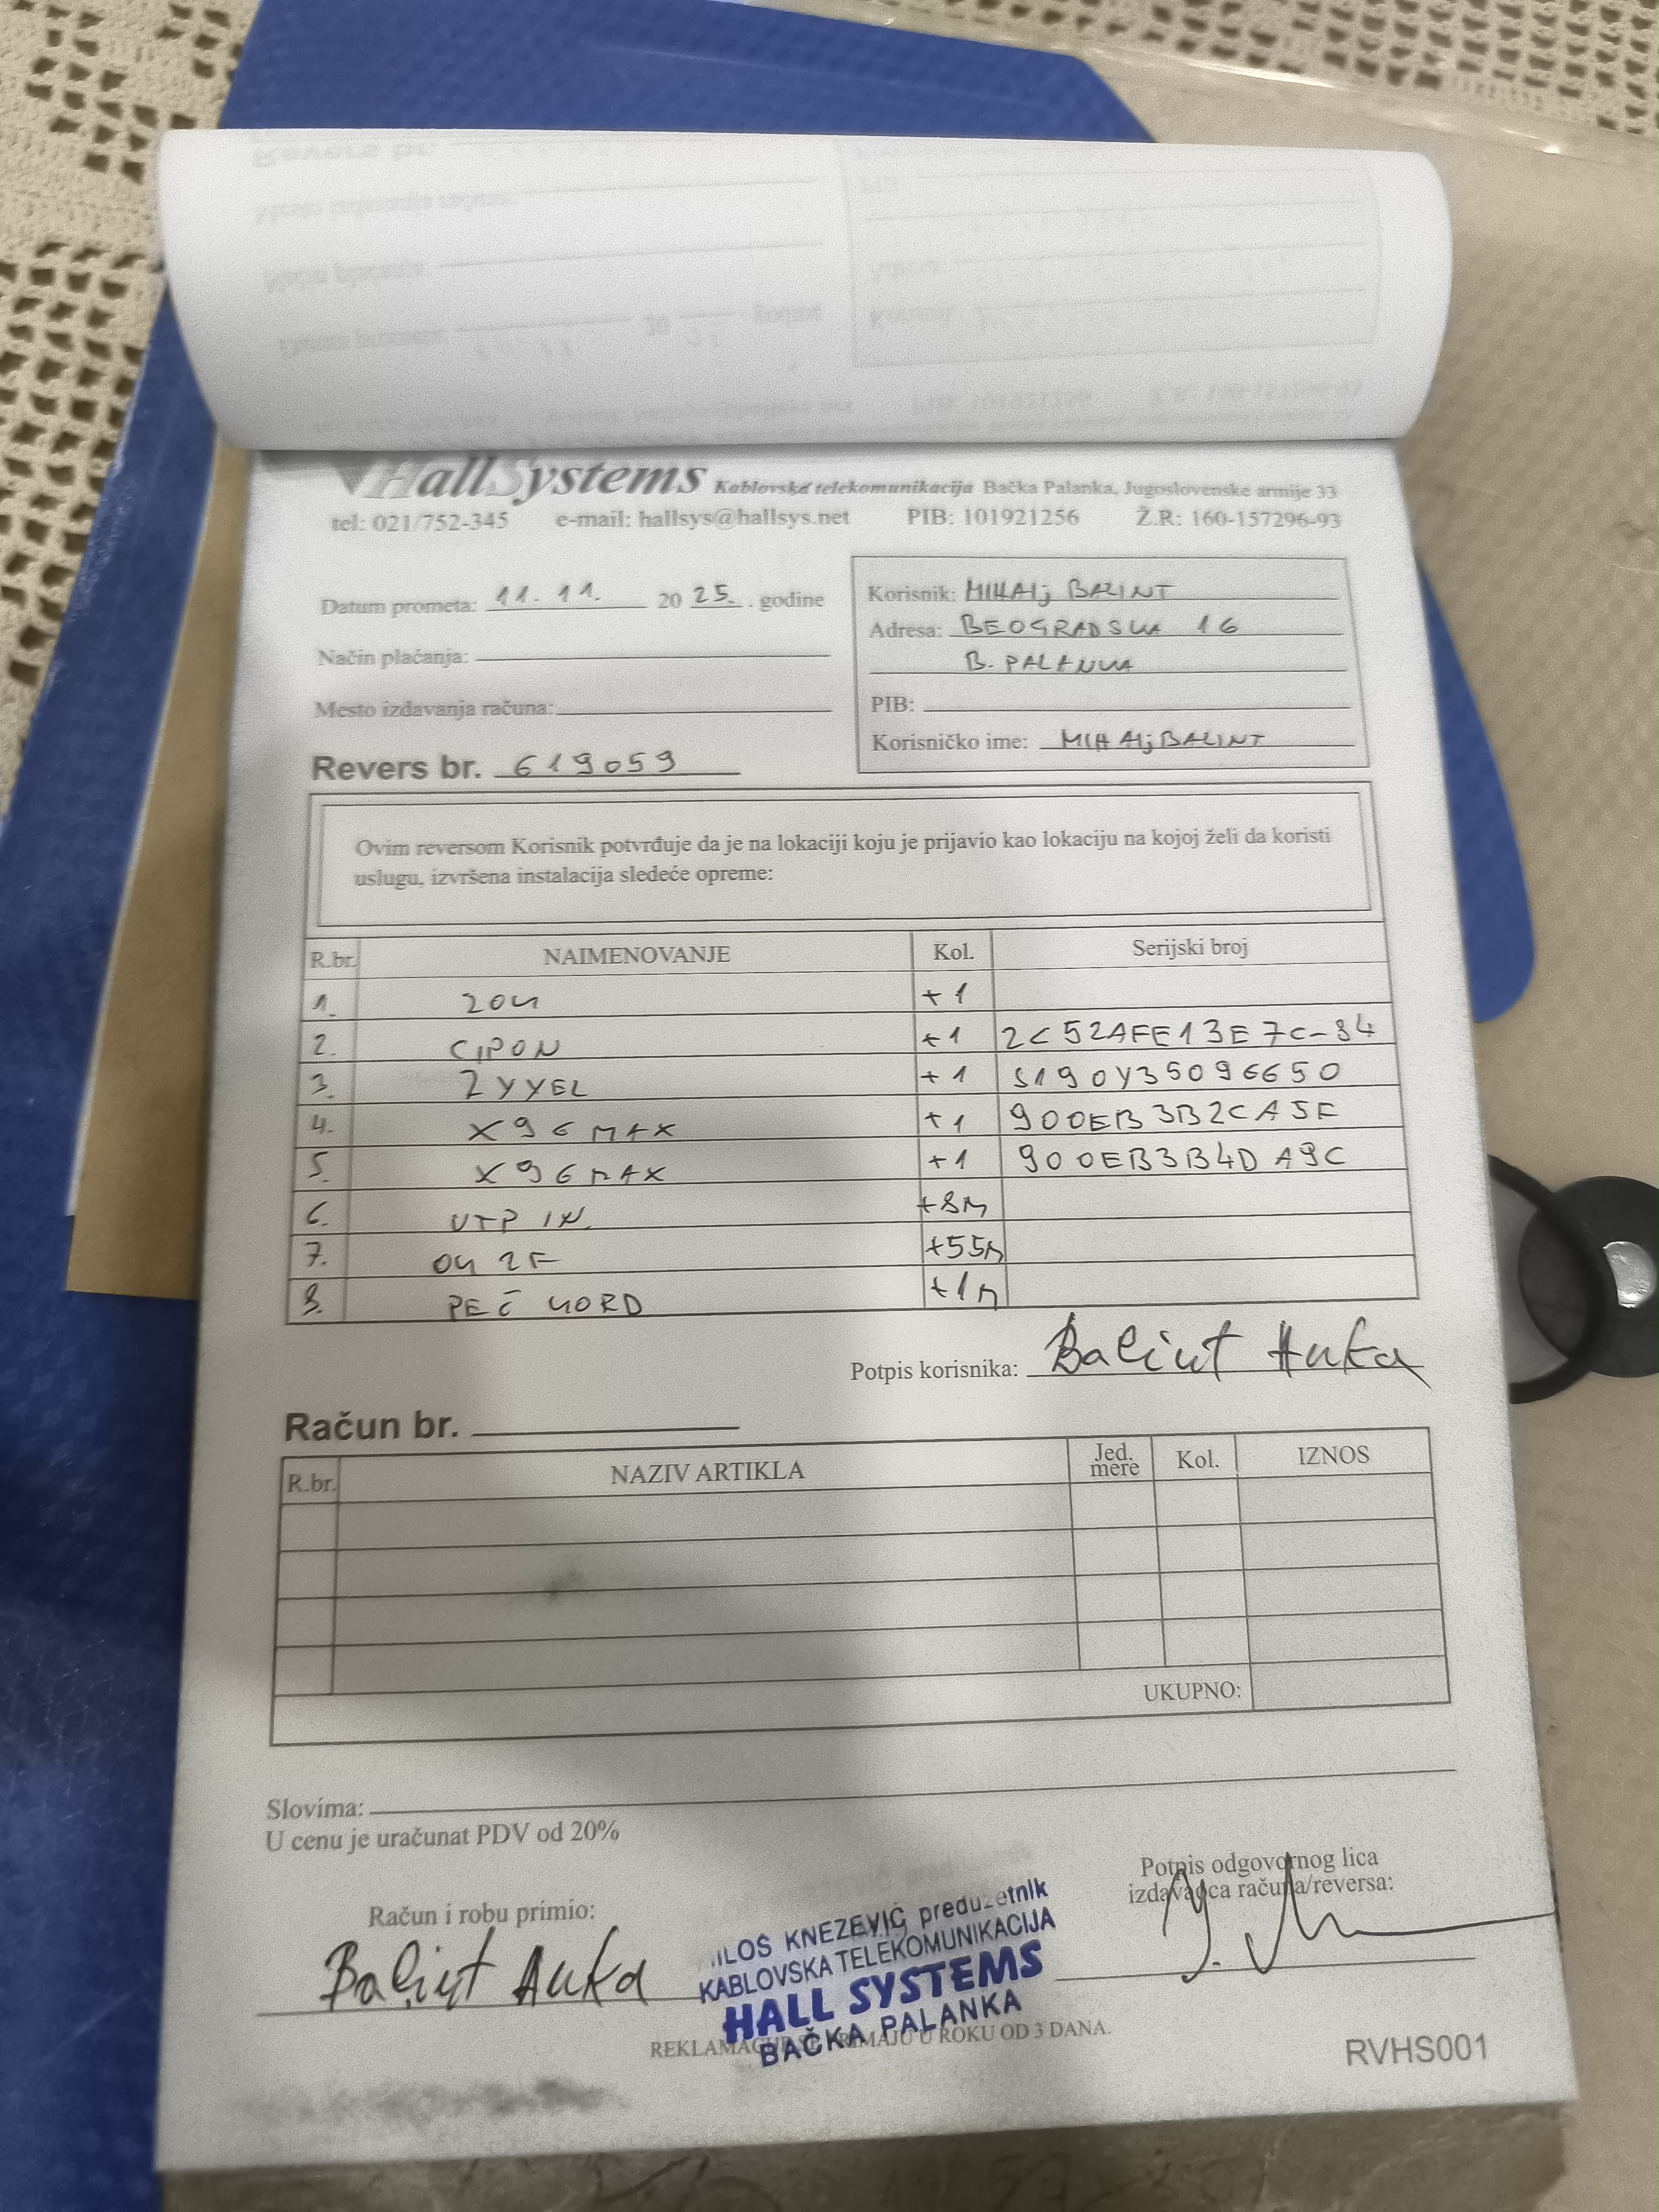 HallSystems Kablovska telekomunikacija Bačka Palanka, Jugoslovenske armije 33
tel: 021/752-345 e-mail: hallsys@hallsys.net PIB: 101921256 Ž.R: 160-157296-93
Datum prometa: 11. 11. 20 25. . godine
Način plaćanja:
Mesto izdavanja računa:
Revers br. 619059
Korisnik: MIHALj BALINT
Adresa: BEOGRADSKA 16
B. PALANKA
PIB:
Korisničko ime: MIHALjBALINT
Ovim reversom Korisnik potvrđuje da je na lokaciji koju je prijavio kao lokaciju na kojoj želi da koristi
uslugu, izvršena instalacija sledeće opreme:
R.br. NAIMENOVANJE Kol. Serijski broj
1. ZOK +1
2. GPON +1 2C52AFE13E7C-84
3. ZYXEL +1 S190Y35096650
4. X96 MAX +1 900EB3B2CA5F
5. X96 MAX +1 900EB3B4DA9C
6. UTP IN. +8M
7. OK 2F +55M
8. PEČ KORD +1M
Potpis korisnika: Balint Anka
Račun br.
R.br. NAZIV ARTIKLA Jed. mere Kol. IZNOS
UKUPNO:
Slovima:
U cenu je uračunat PDV od 20%
Račun i robu primio:
Balint Anka
ILOŠ KNEŽEVIĆ preduzetnik
KABLOVSKA TELEKOMUNIKACIJA
HALL SYSTEMS
BAČKA PALANKA
Potpis odgovornog lica
izdavaoca računa/reversa:
U ROKU OD 3 DANA.
RVHS001